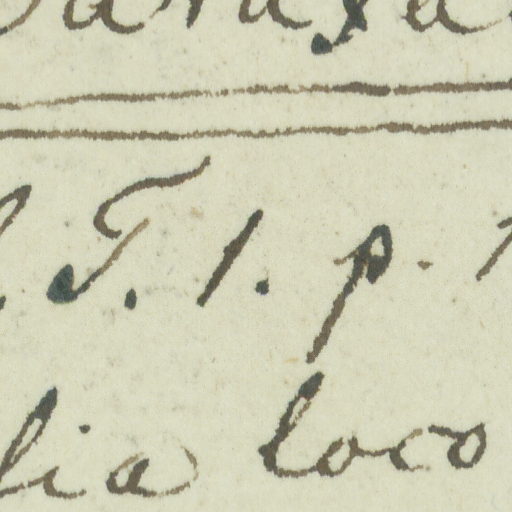 T. 1. p. 1
lia loco